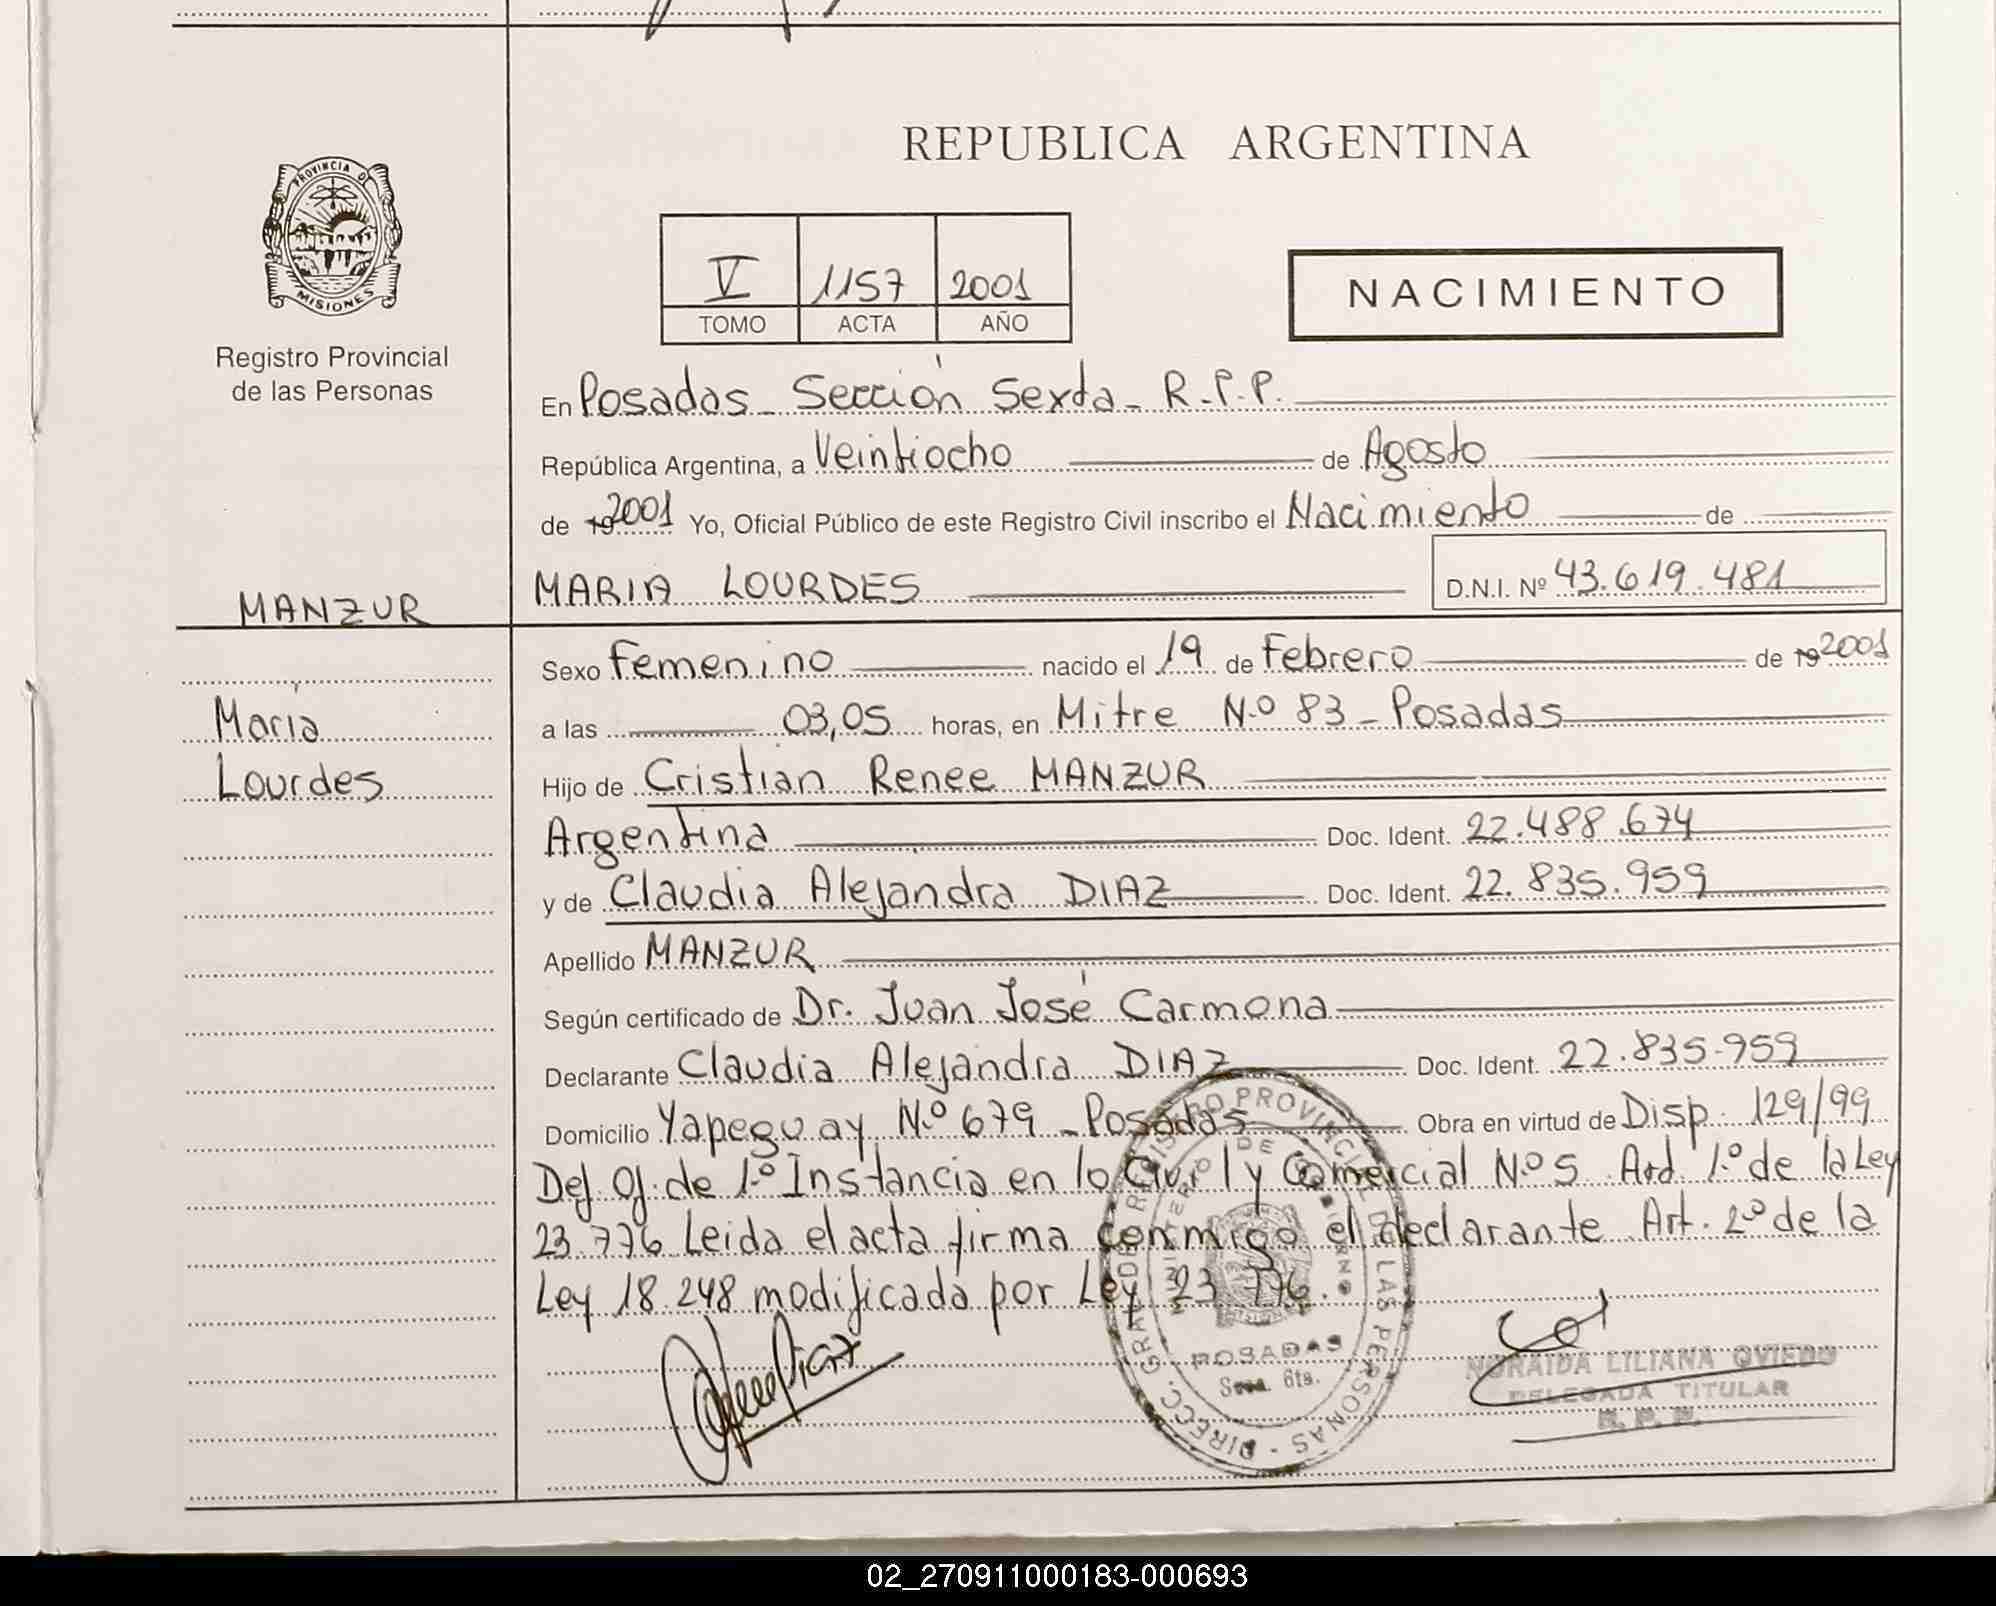 REPUBLICA ARGENTINA
PROVINCIA DE
MISIONES
Registro Provincial
de las Personas
V 1157 2001
TOMO ACTA AÑO
NACIMIENTO
En Posadas - Sección Sexta - R.P.P.
República Argentina, a Veintiocho de Agosto
de 19 2001 Yo, Oficial Público de este Registro Civil inscribo el Nacimiento de
MARIA LOURDES D.N.I. Nº 43.619.481
MANZUR
María
Lourdes
Sexo Femenino nacido el 19 de Febrero de 19 2001
a las 03,05 horas, en Mitre N.º 83 - Posadas
Hijo de Cristian Renee MANZUR
Argentina Doc. Ident. 22.488.674
y de Claudia Alejandra DIAZ Doc. Ident. 22.835.959
Apellido MANZUR
Según certificado de Dr. Juan José Carmona
Declarante Claudia Alejandra DIAZ Doc. Ident. 22.835.959
Domicilio Yapeguay N.º 679 - Posadas Obra en virtud de Disp. 129/99
Def. Of. de 1.º Instancia en lo Civil y Comercial N.º 5. Art. 1.º de la Ley
23.776 Leida el acta firma conmigo el declarante. Art. 2.º de la
Ley 18.248 modificada por Ley 23.776.
DIRECC. GRAL. DE REGISTRO PROVINCIAL DE LAS PERSONAS
MINISTERIO DE GOBIERNO
POSADAS
Secc. 6ta.
NORAIDA LILIANA OVIEDO
DELEGADA TITULAR
R. P. P.
02_270911000183-000693